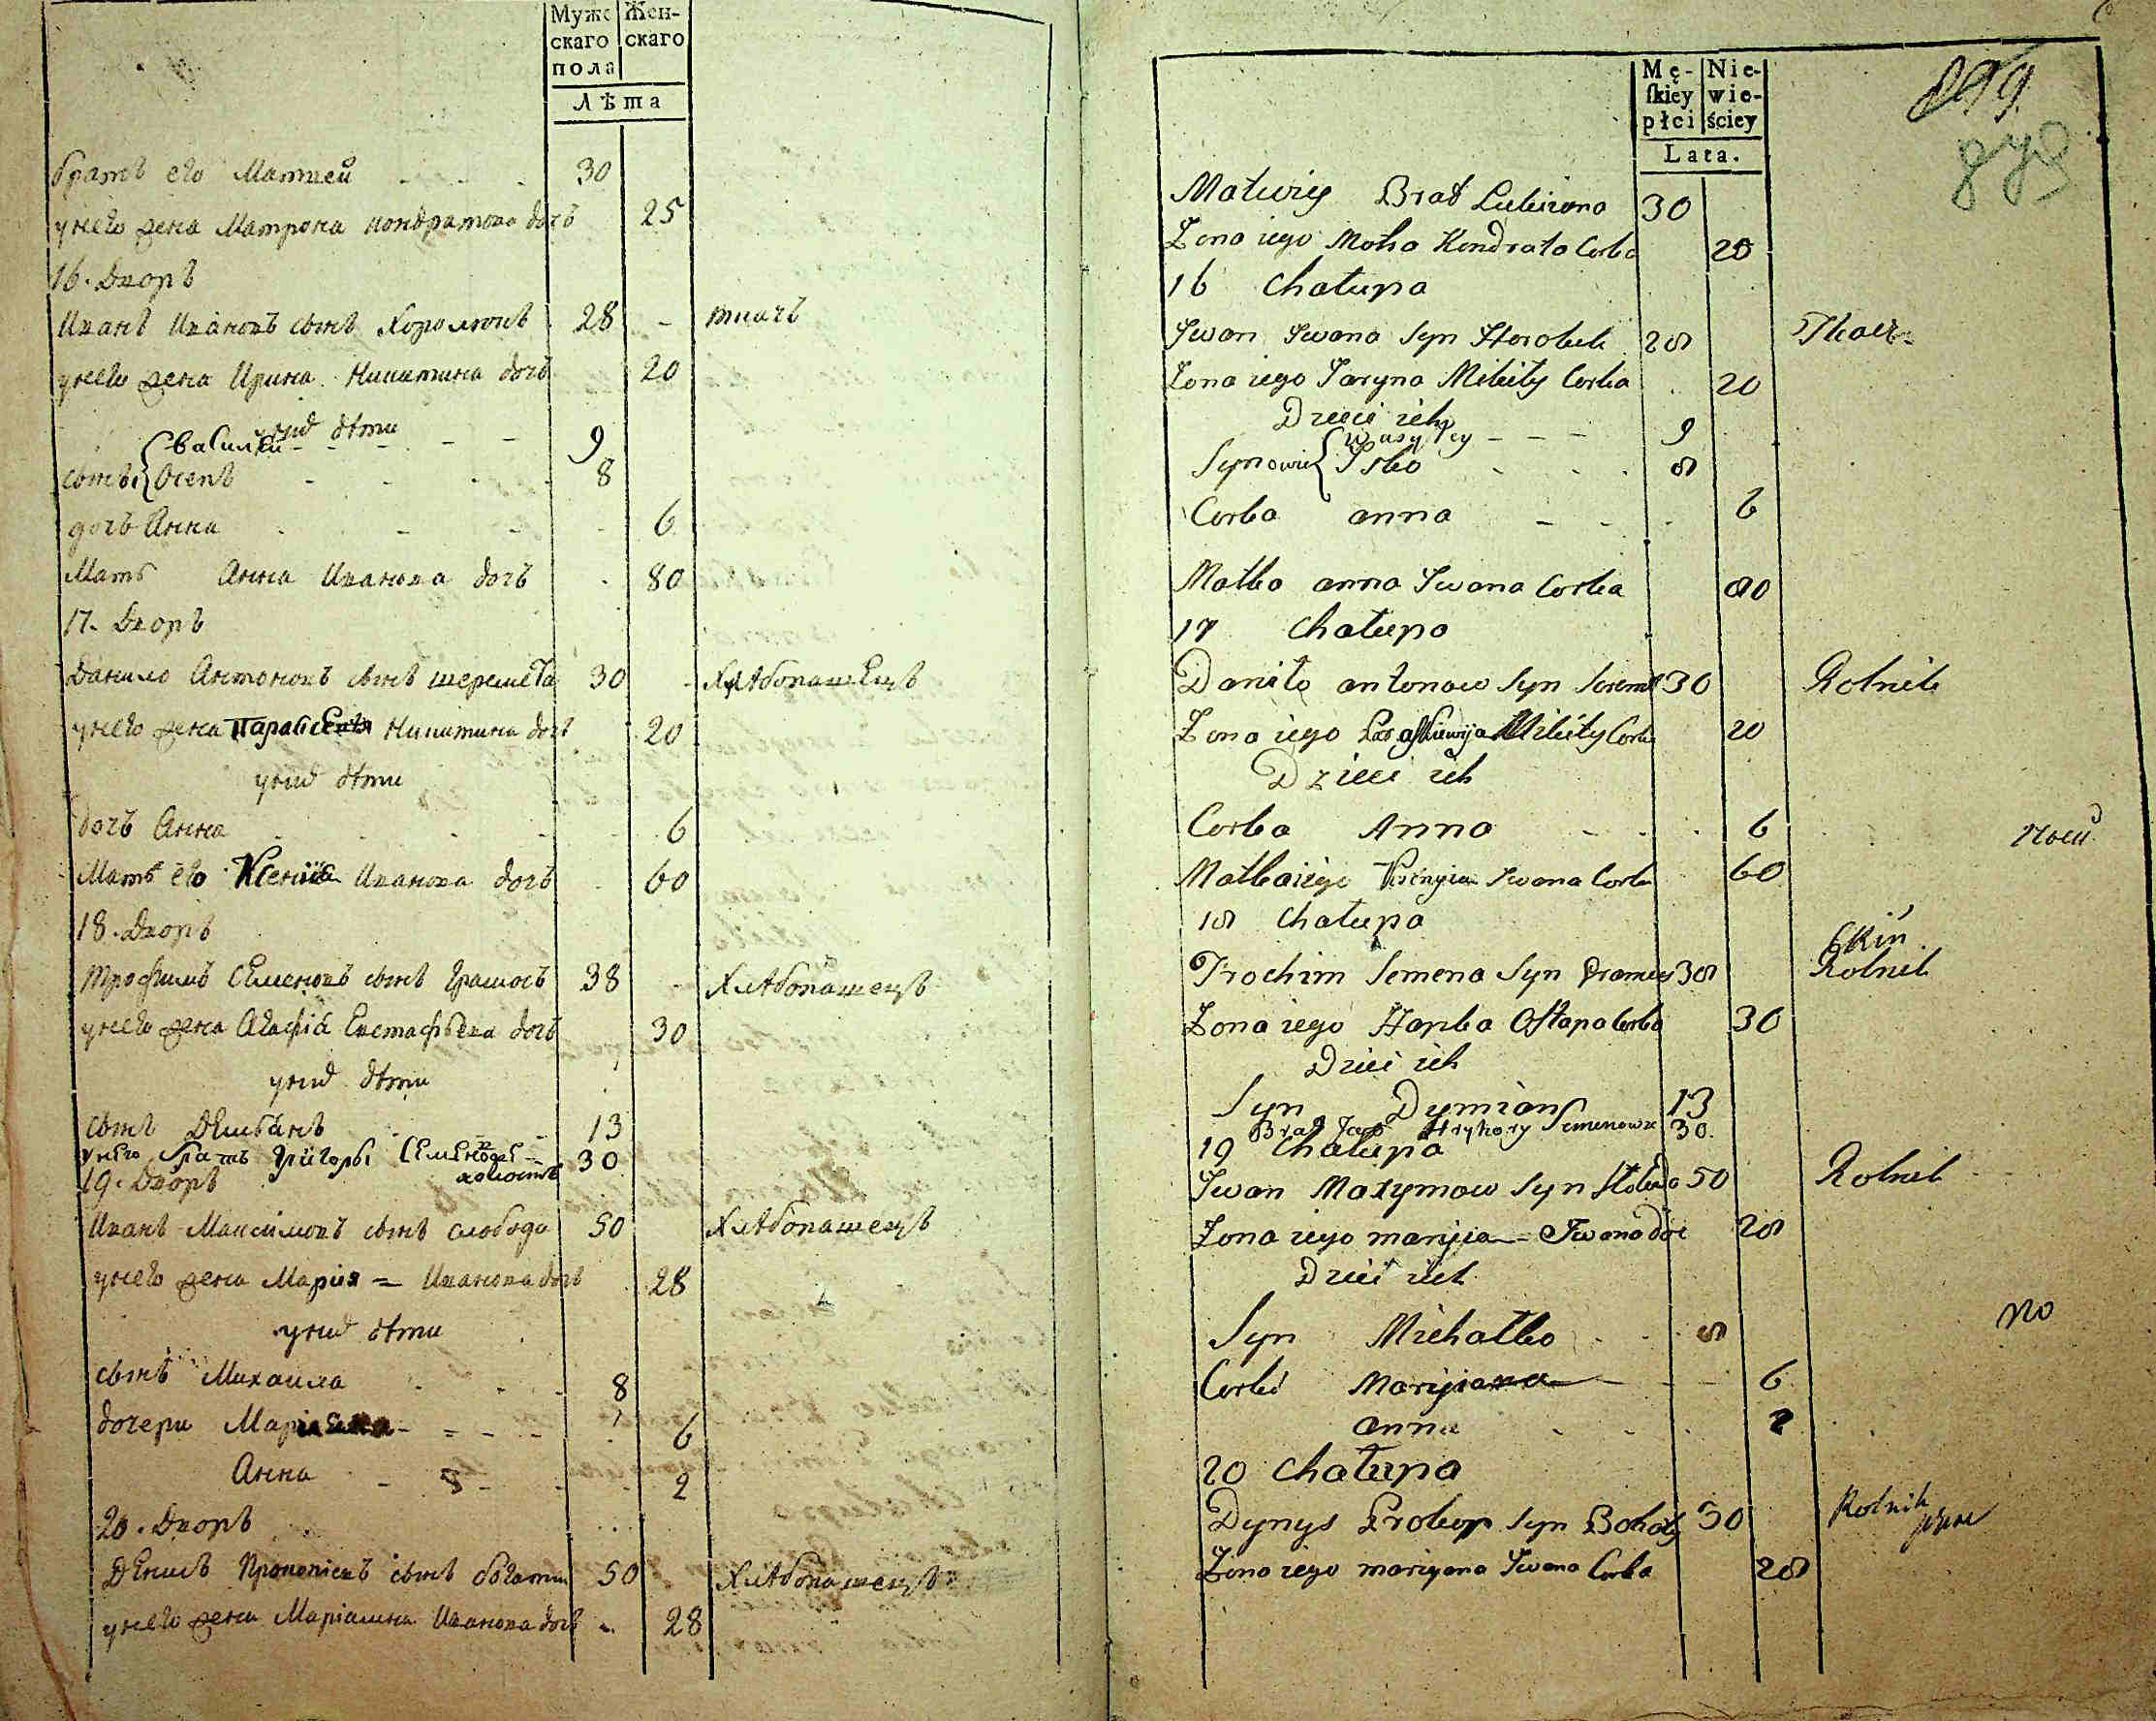 Муже Жен-
скаго скаго
пола
Лѣта
братъ его Матвей - - - 30
унего жена Матрона кондратова дочь 25
16. Дворъ
Иванъ Ивановъ сынъ Хоролюкъ 28 - ткачь
унего жена Ирина Никитина дочь 20
унихъ дѣти
Василей - - - 9
сыны Осепъ - - - 8
дочь Анна - - - 6
Мать Анна Иванова дочь 80
17. Дворъ
Данило Антоновъ сынъ шеремета 30 - Хлѣбопашецъ
унего жена Параскевія Никитина дочь 20
унихъ дѣти
дочь Анна - - - 6
Мать его Ксенія Иванова дочь 60
18. Дворъ
Трофимъ Семеновъ сынъ 38 - Хлѣбопашецъ
унего жена Агафіа Евстафьева дочь 30
унихъ дѣти
сынъ Демьанъ - 13
унего братъ Григорей Семеновъ - 30
холостъ
19. Дворъ
Иванъ Максимовъ сынъ слобода 50 Хлѣбопашецъ
унего жена Марія = Иванова дочь 28
унихъ дѣти
сынъ Михаила - - - 8
дочери Маріанна - = - - 6
Анна - - - 2
20. Дворъ
Денисъ Прокопіевъ сынъ богатии 50 Хлѣбопашецъ
унего жена Маріанна Иванова дочь 28
Mę- Nie-
ſkiey wie-
płci ściey
Lata.
899.
Matwiey Brat 30
Żona iego Kondrata Corka 20
16 Chałupa
Iwan Iwana Syn 28 Tkacz
Żona iego Jaryna Mikity Corka 20
Dzieci ich
Wasyley - - - 9
Synowie Isko - - - 8
Corka anna - - - 6
Matka anna Iwana Corka 80
17 Chałupa
Daniło antonow Syn 30 Rolnik
Żona iego Paraſkiewija Mikity Corka 20
Dzieci ich
Corka Anna - - - 6
Matka iego Ksienyia Iwana Corka 60
18 Chałupa
Trochim Semena Syn 38 Rolnik
Żona iego Hapka Oſtapa Corka 30
Dzieci ich
Syn Dymian 13
Brat Jego Hryhory Semenow 30.
19 Chałupa
Iwan Maxymow Syn 50 Rolnik
Żona iego maryia - Iwana 28
Dzieci ich
Syn Michałko - - - 8
Corki Maryiana - - - 6
anna - - - 2
20 Chałupa
Dynys Prokop Syn Bohaty 50 Rolnik
Żona iego maryana Iwana Corka 28